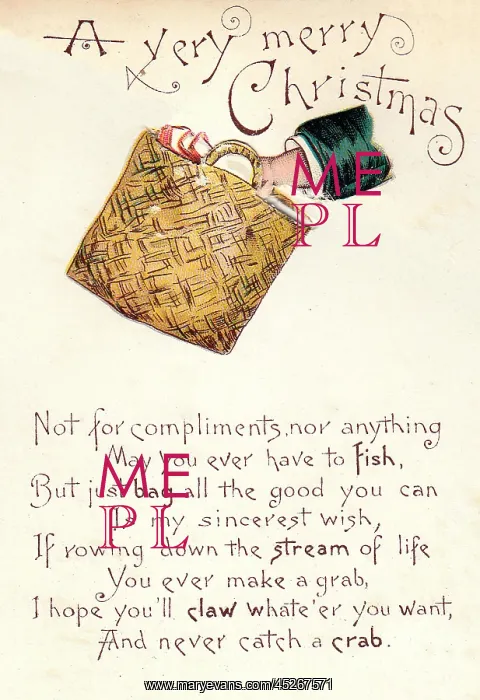 A very merry
Christmas
ME
PL
Not for compliments, nor anything
May you ever have to fish,
ME
But just bag all the good you can
Is my sincerest wish,
PL
If rowing down the stream of life
You ever make a grab,
I hope you'll claw whate'er you want,
And never catch a crab.
www.maryevans.com/45267571